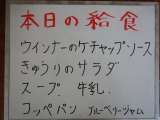 本日の給食
ウインナーのケチャップソース
きゅうりのサラダ
スープ 牛乳
コッペパン ブルーベリージャム